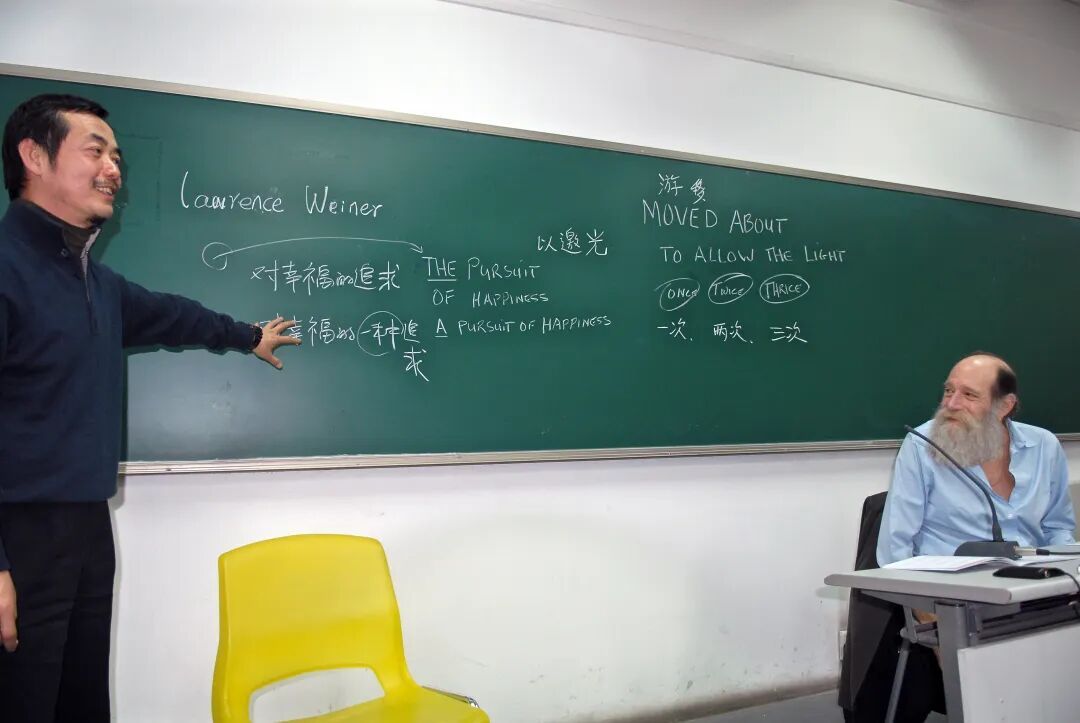 Lawrence Weiner
对幸福的追求
THE PURSUIT
OF HAPPINESS
对幸福的一种追求
A PURSUIT OF HAPPINESS
以邀光
游移
MOVED ABOUT
TO ALLOW THE LIGHT
ONCE TWICE THRICE
一次、两次、三次